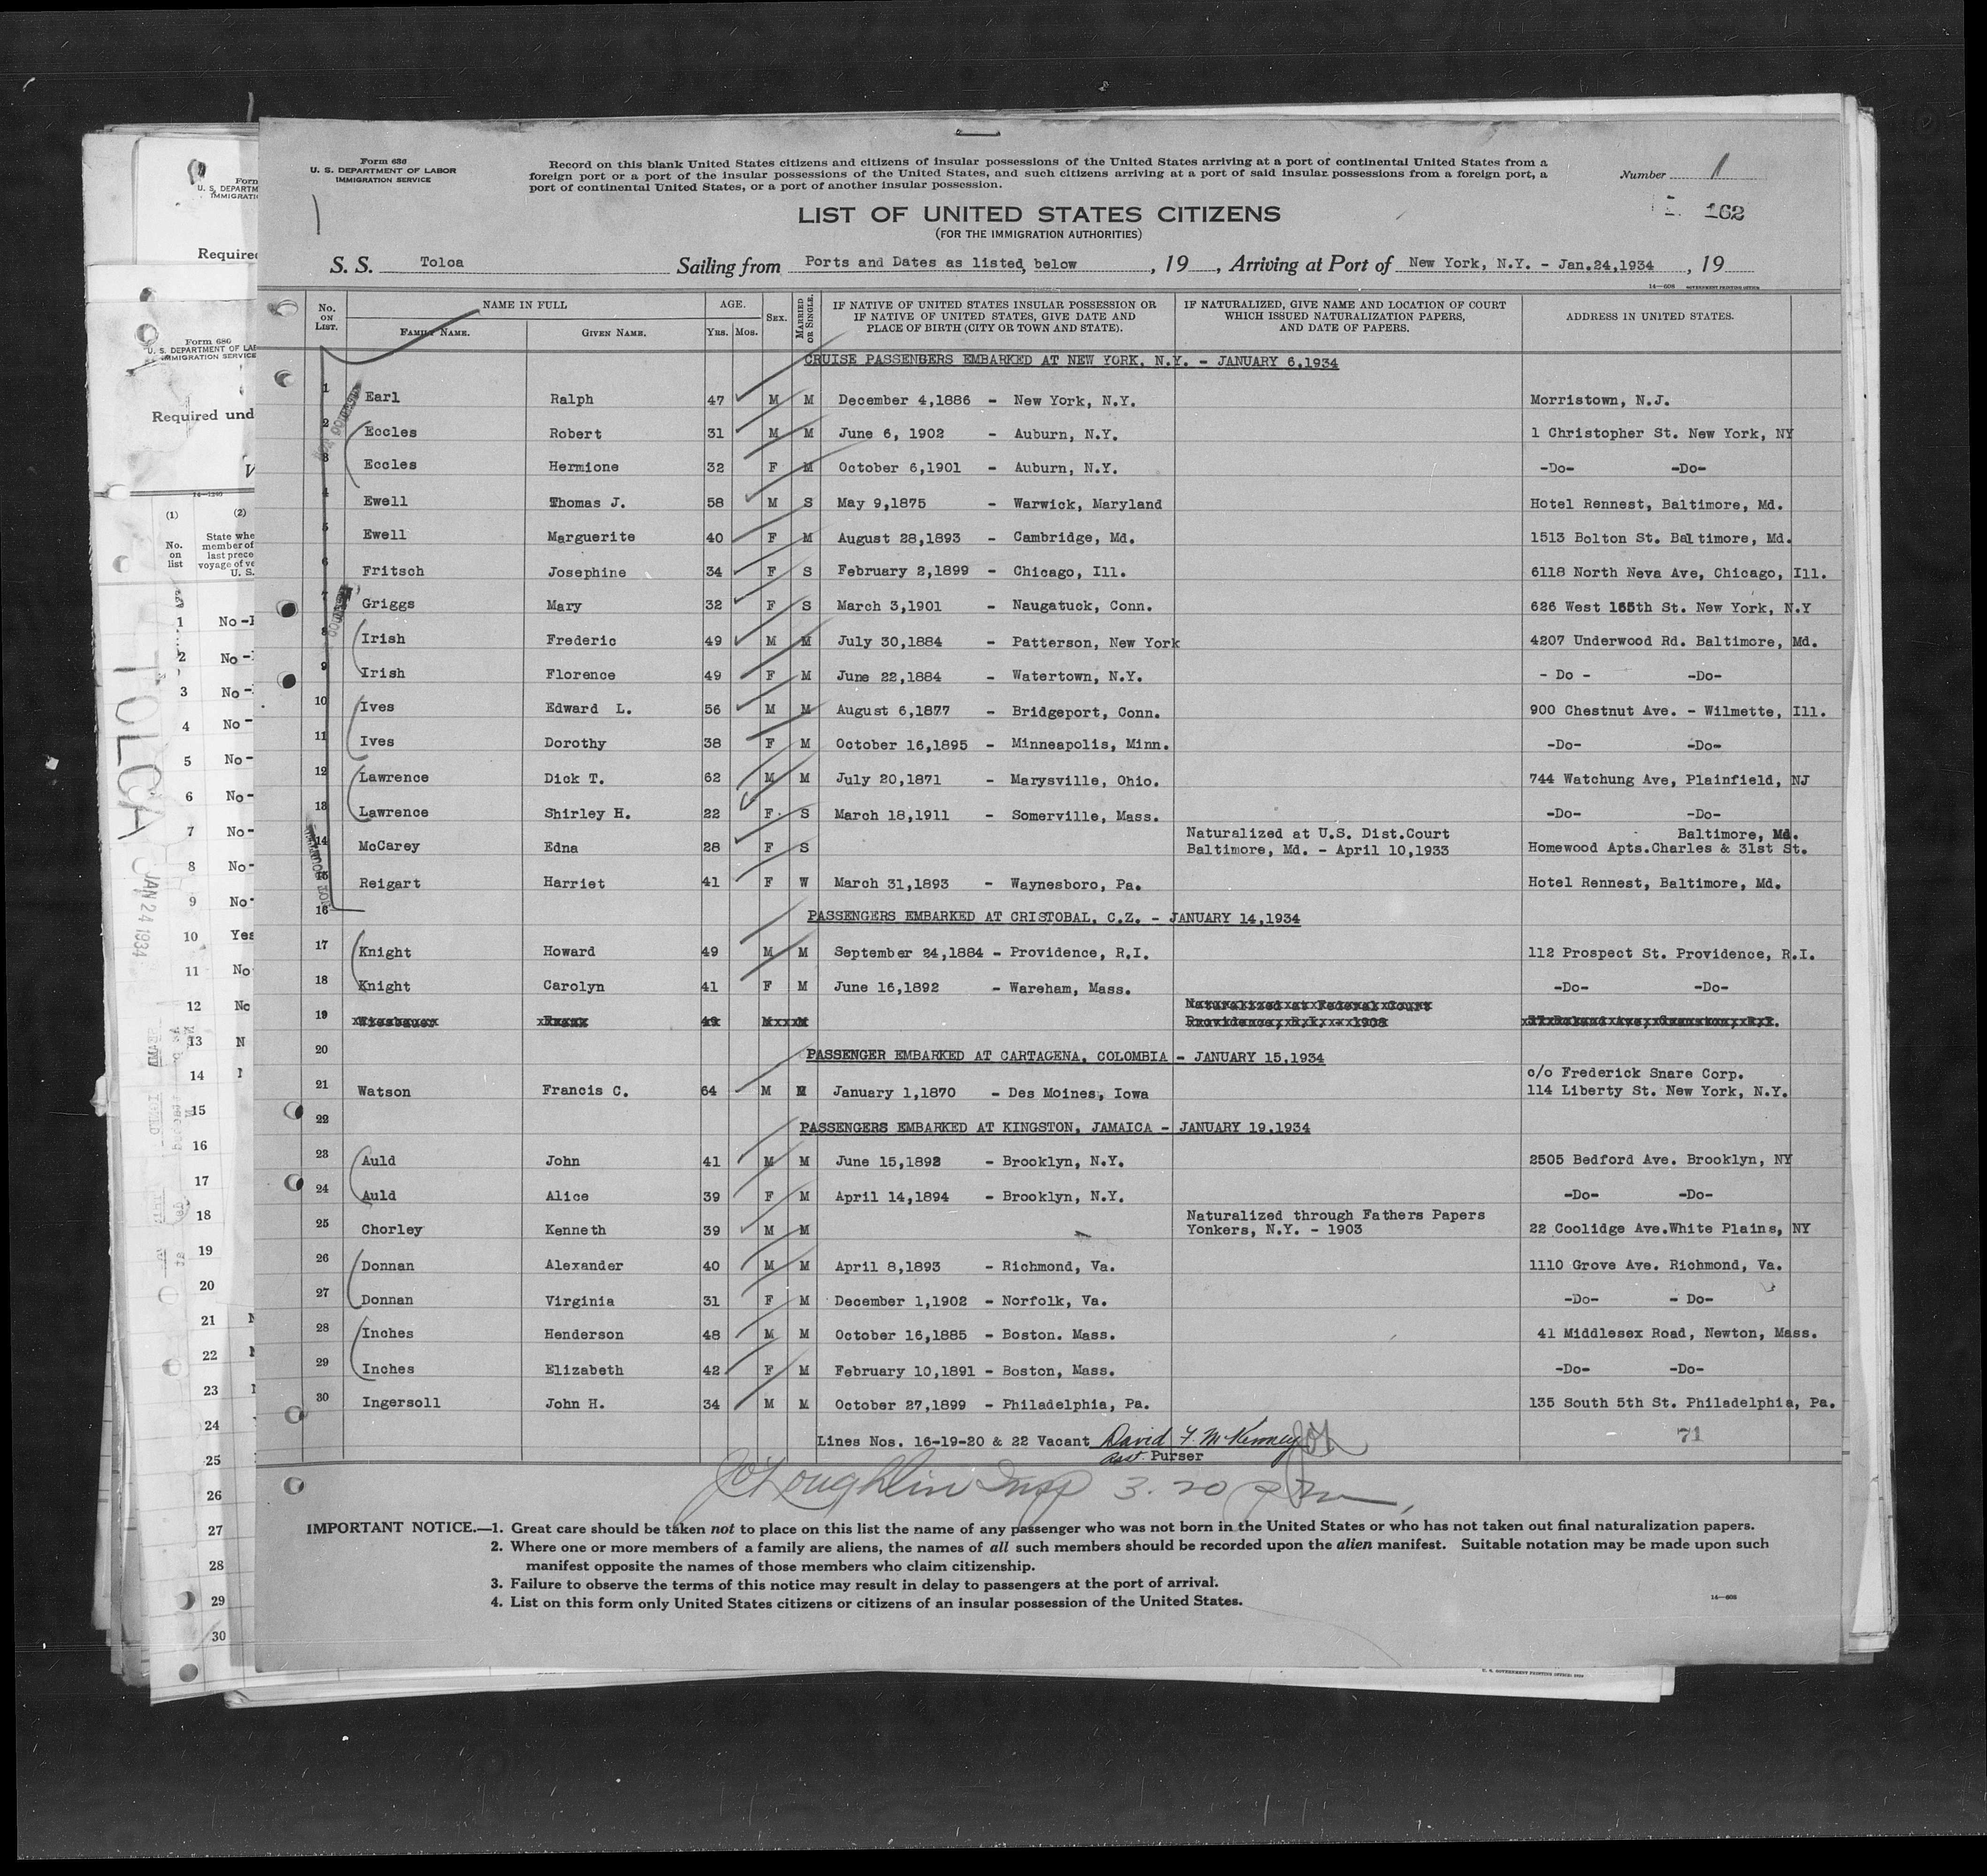 Form 630
U. S. DEPARTMENT OF LABOR
IMMIGRATION SERVICE
Record on this blank United States citizens and citizens of insular possessions of the United States arriving at a port of continental United States from a
foreign port or a port of the insular possessions of the United States, and such citizens arriving at a port of said insular possessions from a foreign port, a
port of continental United States, or a port of another insular possession.
Number 1
162
LIST OF UNITED STATES CITIZENS
(FOR THE IMMIGRATION AUTHORITIES)
S. S. Toloa Sailing from Ports and Dates as listed below, 19 , Arriving at Port of New York, N.Y. - Jan.24,1934, 19
14—608 GOVERNMENT PRINTING OFFICE
No. ON LIST. NAME IN FULL FAMILY NAME. GIVEN NAME. AGE. YRS. MOS. SEX. MARRIED OR SINGLE. IF NATIVE OF UNITED STATES INSULAR POSSESSION OR IF NATIVE OF UNITED STATES, GIVE DATE AND PLACE OF BIRTH (CITY OR TOWN AND STATE). IF NATURALIZED, GIVE NAME AND LOCATION OF COURT WHICH ISSUED NATURALIZATION PAPERS, AND DATE OF PAPERS. ADDRESS IN UNITED STATES.
CRUISE PASSENGERS EMBARKED AT NEW YORK, N.Y. - JANUARY 6,1934
1 Earl Ralph 47 M M December 4,1886 - New York, N.Y. Morristown, N.J.
2 Eccles Robert 31 M M June 6, 1902 - Auburn, N.Y. 1 Christopher St. New York, NY
3 Eccles Hermione 32 F M October 6,1901 - Auburn, N.Y. -Do- -Do-
4 Ewell Thomas J. 58 M S May 9,1875 - Warwick, Maryland Hotel Rennest, Baltimore, Md.
5 Ewell Marguerite 40 F M August 28,1893 - Cambridge, Md. 1513 Bolton St. Baltimore, Md.
6 Fritsch Josephine 34 F S February 2,1899 - Chicago, Ill. 6118 North Neva Ave, Chicago, Ill.
7 Griggs Mary 32 F S March 3,1901 - Naugatuck, Conn. 626 West 165th St. New York, N.Y
8 Irish Frederic 49 M M July 30,1884 - Patterson, New York 4207 Underwood Rd. Baltimore, Md.
9 Irish Florence 49 F M June 22,1884 - Watertown, N.Y. - Do - -Do-
10 Ives Edward L. 56 M M August 6,1877 - Bridgeport, Conn. 900 Chestnut Ave. - Wilmette, Ill.
11 Ives Dorothy 38 F M October 16,1895 - Minneapolis, Minn. -Do- -Do-
12 Lawrence Dick T. 62 M M July 20,1871 - Marysville, Ohio. 744 Watchung Ave, Plainfield, NJ
13 Lawrence Shirley H. 22 F. S March 18,1911 - Somerville, Mass. -Do- -Do-
Naturalized at U.S. Dist.Court Baltimore, Md.
14 McCarey Edna 28 F S Baltimore, Md. - April 10,1933 Homewood Apts.Charles & 31st St.
15 Reigart Harriet 41 F W March 31,1893 - Waynesboro, Pa. Hotel Rennest, Baltimore, Md.
16 PASSENGERS EMBARKED AT CRISTOBAL, C.Z. - JANUARY 14,1934
17 Knight Howard 49 M M September 24,1884 - Providence, R.I. 112 Prospect St. Providence, R.I.
18 Knight Carolyn 41 F M June 16,1892 - Wareham, Mass. -Do- -Do-
Naturalized at Federal Court
19 Wiesbauer Frank 49 M M Providence, R.I. - 1908
20 PASSENGER EMBARKED AT CARTAGENA, COLOMBIA - JANUARY 15,1934
c/o Frederick Snare Corp.
21 Watson Francis C. 64 M M January 1,1870 - Des Moines, Iowa 114 Liberty St. New York, N.Y.
22 PASSENGERS EMBARKED AT KINGSTON, JAMAICA - JANUARY 19,1934
23 Auld John 41 M M June 15,1892 - Brooklyn, N.Y. 2505 Bedford Ave. Brooklyn, NY
24 Auld Alice 39 F M April 14,1894 - Brooklyn, N.Y. -Do- -Do-
Naturalized through Fathers Papers
25 Chorley Kenneth 39 M M Yonkers, N.Y. - 1903 22 Coolidge Ave.White Plains, NY
26 Donnan Alexander 40 M M April 8,1893 - Richmond, Va. 1110 Grove Ave. Richmond, Va.
27 Donnan Virginia 31 F M December 1,1902 - Norfolk, Va. -Do- - Do-
28 Inches Henderson 48 M M October 16,1885 - Boston. Mass. 41 Middlesex Road, Newton, Mass.
29 Inches Elizabeth 42 F M February 10,1891 - Boston, Mass. -Do- -Do-
30 Ingersoll John H. 34 M M October 27,1899 - Philadelphia, Pa. 135 South 5th St. Philadelphia, Pa.
Lines Nos. 16-19-20 & 22 Vacant David F. McKenney 71
Asst. Purser
McLoughlin Insp 3.20 PM
IMPORTANT NOTICE.—1. Great care should be taken not to place on this list the name of any passenger who was not born in the United States or who has not taken out final naturalization papers.
2. Where one or more members of a family are aliens, the names of all such members should be recorded upon the alien manifest. Suitable notation may be made upon such
manifest opposite the names of those members who claim citizenship.
3. Failure to observe the terms of this notice may result in delay to passengers at the port of arrival.
4. List on this form only United States citizens or citizens of an insular possession of the United States.
14—608
U. S. GOVERNMENT PRINTING OFFICE
Form 680
U. S. DEPARTMENT OF LAB
IMMIGRATION SERVICE
Required und
(1) (2)
No. on list
State whe
member of
last prece
voyage of ve
U. S.
1 No -
2 No -
3 No -
4 No -
5 No -
6 No -
7 No -
8 No -
9 No -
10 Yes
11 No
12 No
13 N
14
15
16
17
18
19
20
21
22
23
24
25
26
27
28
29
30
TOLOA
JAN 24 1934